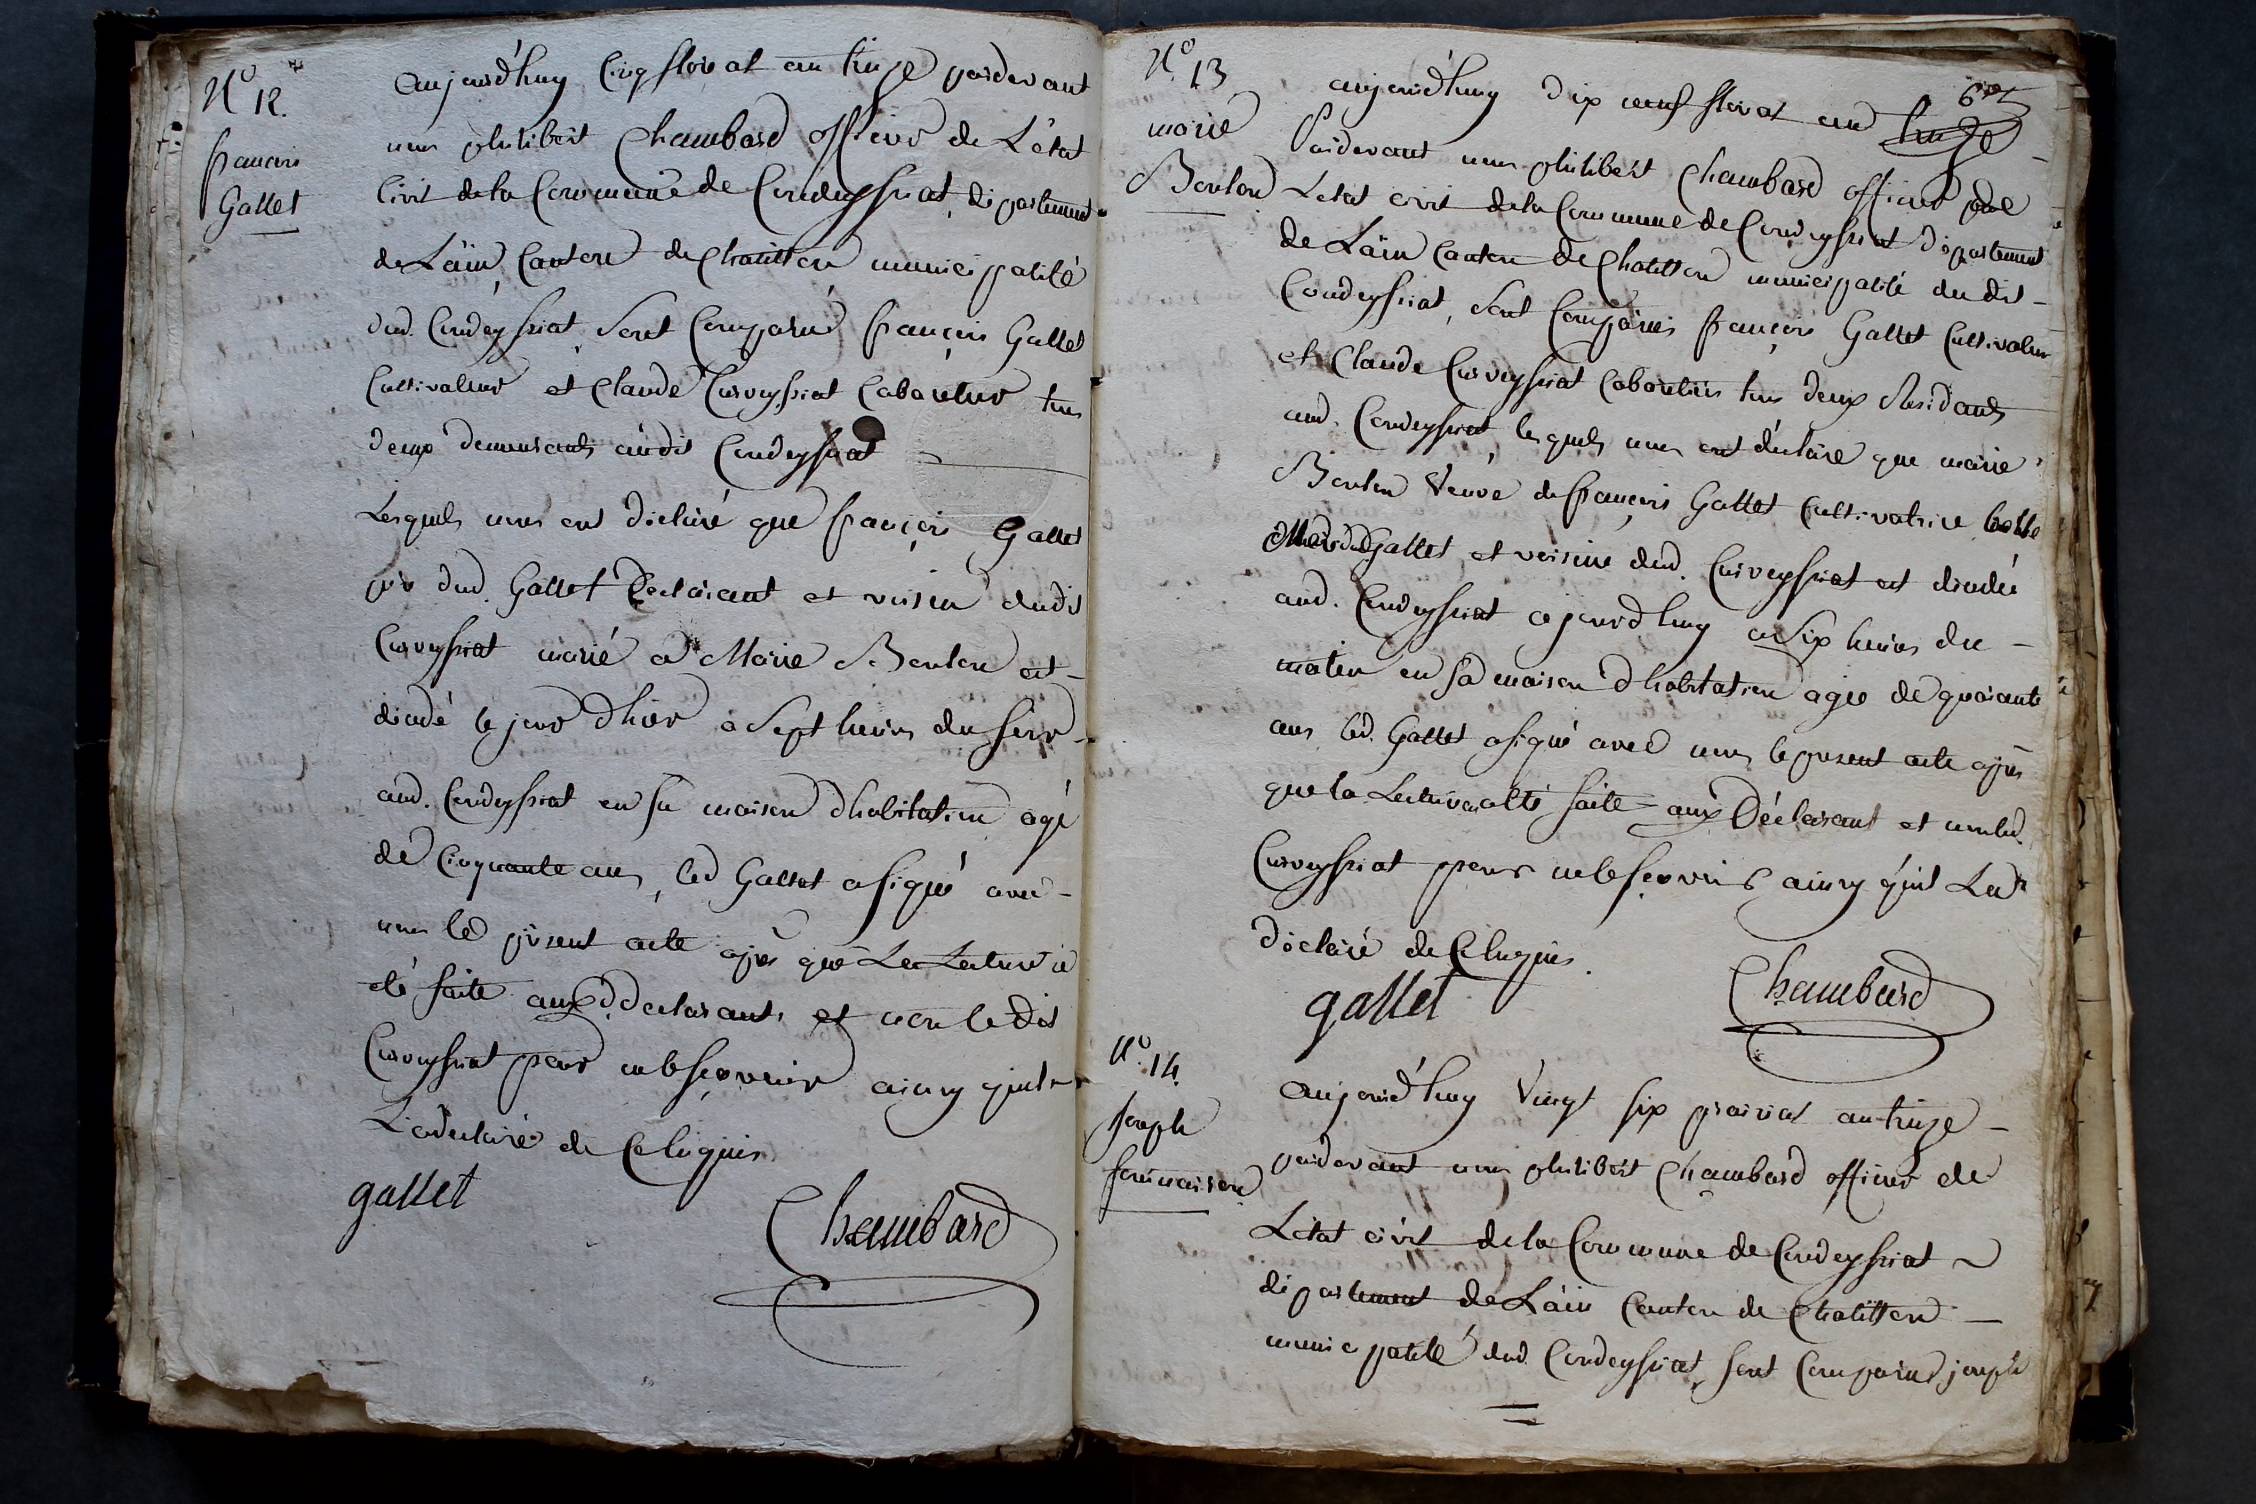 N.° 12.
françois
Gallet
aujourd'huy cinq floreal an treize pardevant
nous philibert Chambard officier de L'état
Civil de la Commune de Condeyssiat, département
de L'ain Canton de Chatillon municipalité
dud. Condeyssiat, sont Comparu françois Gallet
Cultivateur et Claude Curveyssiat Cabaretier tous
deux demeurants audit Condeyssiat
Lesquels nous ont déclaré que françois Gallet
père dud. Gallet Déclarant et voisin dudit
Curveyssiat marié a Marie Bouton est
décédé le jour d'hier a Sept heures du soir
aud. Condeyssiat en sa maison d'habitation agé
de Cinquante ans, led Gallet a signé avec
nous le présent acte après que La Lecture a
été faite aux d. declarants et non le dit
Curveyssiat pour ne le sçavoir ainsy qu'il
L'a déclaré de Ce requis
gallet
Chambard
N.° 13
marie
Bouton
6
aujourd'huy dix neuf floreal an treize
Pardevant nous philibert Chambard officier de
L'etat civil de la Commune de Condeyssiat département
de L'ain Canton de Chatillon municipalité du dit
Condeyssiat, sont Comparus françois Gallet Cultivateur
et Claude Curveyssiat Cabaretier tous deux Residants
aud. Condeyssiat, lesquels nous ont déclaré que marie
Bouton Veuve de françois Gallet Cultivatrice
dud Gallet, et voisine dud. Curveyssiat est décédée
aud. Condeyssiat ajourd'huy a Six heures du
matin en sa maison d'habitation agée de quarante
ans led. Gallet a signé avec nous le present acte après
que la Lecture a été faite aux Déclarant et non led.
Curveyssiat pour ne le sçavoir ainsy qu'il La
déclaré de Ce requis.
gallet
Chambard
N.° 14.
Joseph
aujourd'huy Vingt six prairial an treize
pardevant nous philibert Chambard officier de
L'état civil de la Commune de Condeyssiat
département de L'ain Canton de Chatillon
municipalité dud. Condeyssiat, sont Comparus joseph